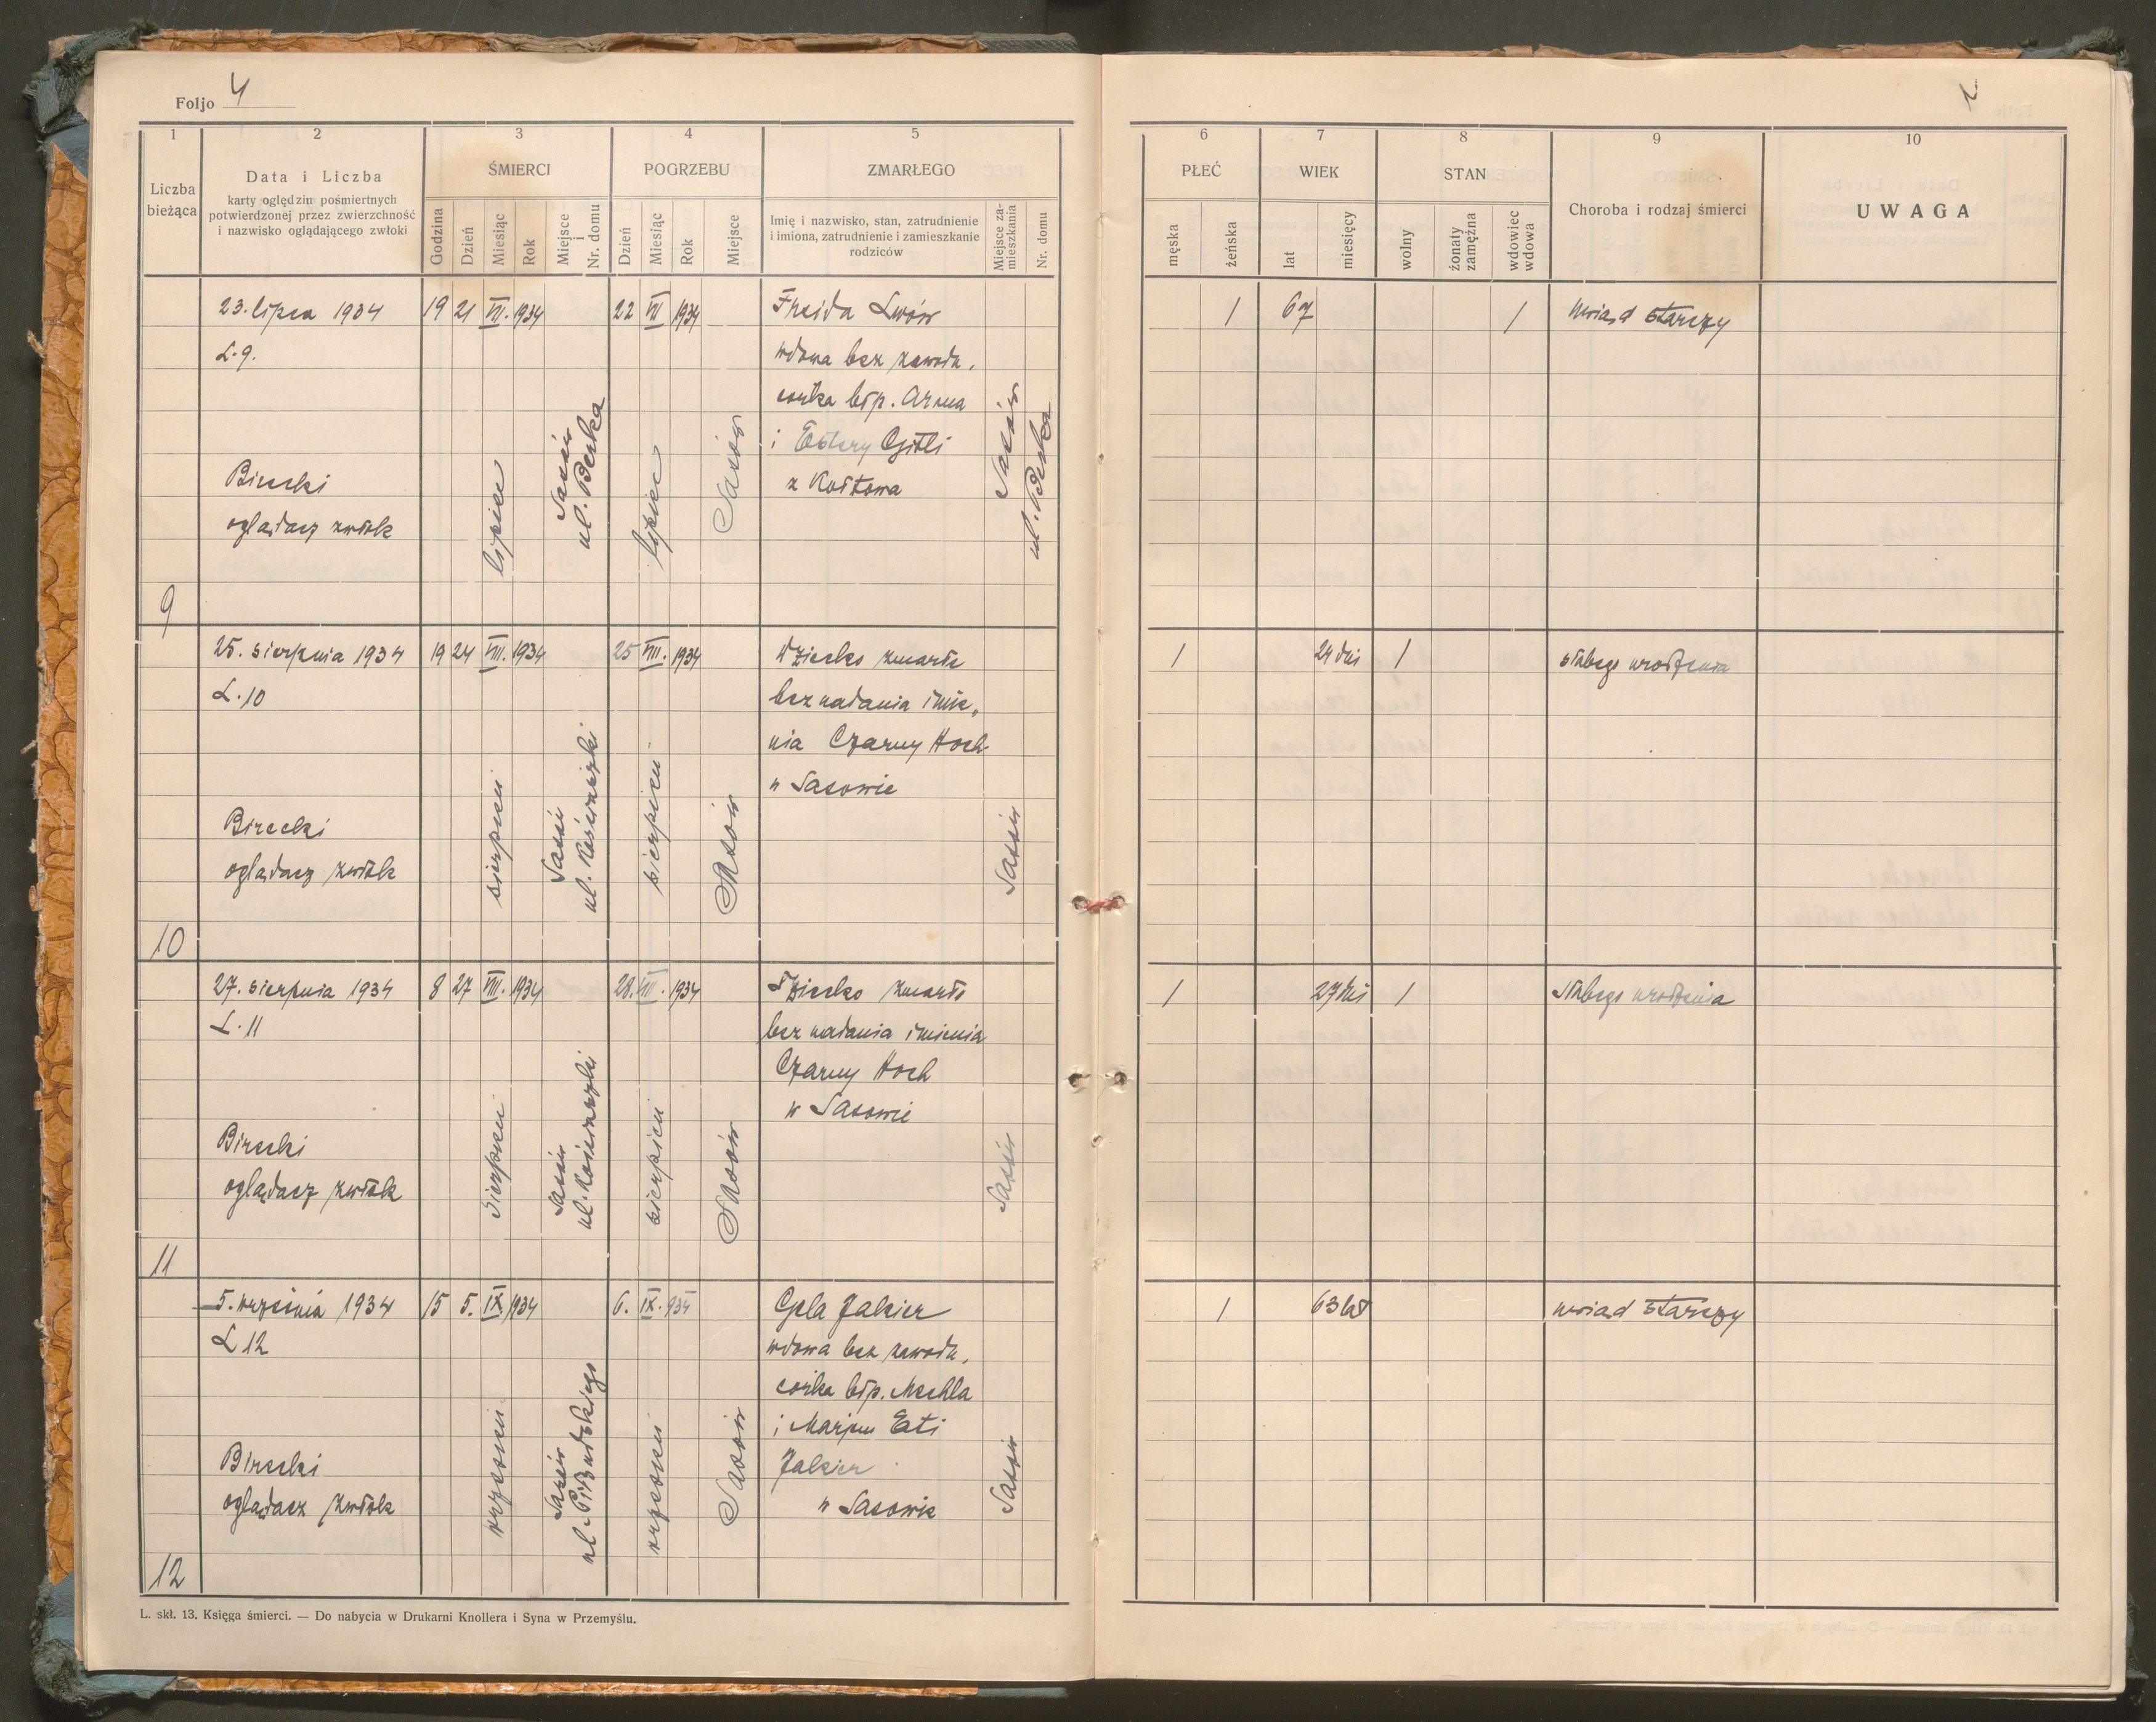 Foljo 4
1
2
3
4
5
Liczba bieżąca
Data i Liczba
karty oględzin pośmiertnych
potwierdzonej przez zwierzchność
i nazwisko oglądającego zwłoki
ŚMIERCI
Godzina
Dzień
Miesiąc
Rok
Miejsce i Nr. domu
POGRZEBU
Dzień
Miesiąc
Rok
Miejsce
ZMARŁEGO
Imię i nazwisko, stan, zatrudnienie
i imiona, zatrudnienie i zamieszkanie
rodziców
Miejsce zamieszkania
Nr. domu
6
7
8
9
10
PŁEĆ
męska
żeńska
WIEK
lat
miesięcy
STAN
wolny
żonaty zamężna
wdowiec wdowa
Choroba i rodzaj śmierci
UWAGA
9
23. lipca 1934
L. 9.
Birecki
oglądacz zwłok
19 21 VII. 1934
lipiec
Sasów
ul. Berka
22 VII 1934
lipiec
Sasów
Freida Lwów
wdowa bez zawodu,
córka błp. Arona
i Estery Gitli
z Kołtowa
Sasów
ul. Berka
1
67
1
uwiąd starczy
10
25. sierpnia 1934
L. 10
Birecki
oglądacz zwłok
19 24 VIII. 1934
sierpień
Sasów
ul. Kościuszki
25 VIII. 1934
sierpień
Sasów
Dziecko zmarłe
bez nadania imie„
nia Czarny Hoch
w Sasowie
Sasów
1
24 dni
1
słabego urodzenia
11
27. sierpnia 1934
L. 11
Birecki
oglądacz zwłok
8 27 VIII. 1934
Sierpień
Sasów
ul. Kościuszki
28. VIII. 1934
sierpień
Sasów
Dziecko zmarłe
bez nadania imienia
Czarny Hoch
w Sasowie
Sasów
1
27 dni
1
słabego urodzenia
12
5. września 1934
L 12
Birecki
oglądacz zwłok
15 5. IX. 1934
wrzesień
Sasów
ul. Piłsudskiego
6. IX. 934
wrzesień
Sasów
Gela Jakier
wdowa bez zawodu,
córka błp. Mechla
i Marjem Eti
Jakier
w Sasowie
Sasów
1
63 lat
uwiąd starczy
L. skł. 13. Księga śmierci. — Do nabycia w Drukarni Knollera i Syna w Przemyślu.